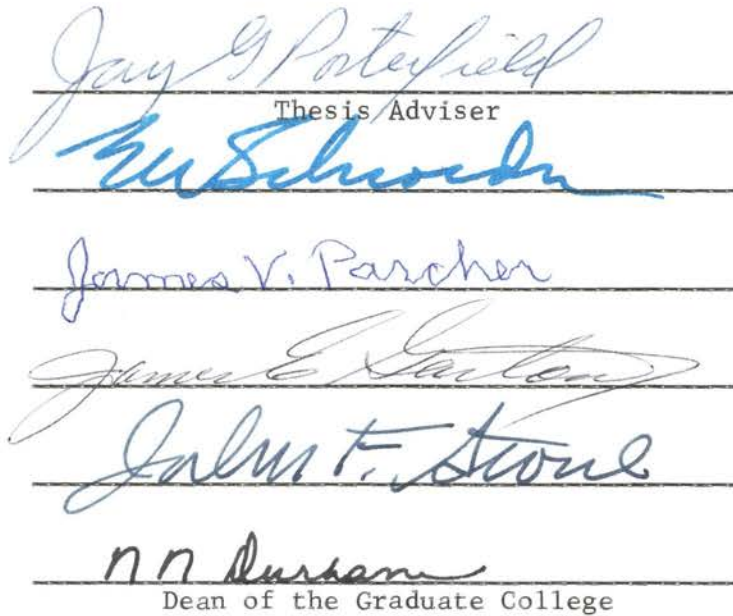 Jay G Porterfield
Thesis Adviser
EW Schroeder
James V. Parcher
James E Garton
John F. Stone
N N Durham
Dean of the Graduate College